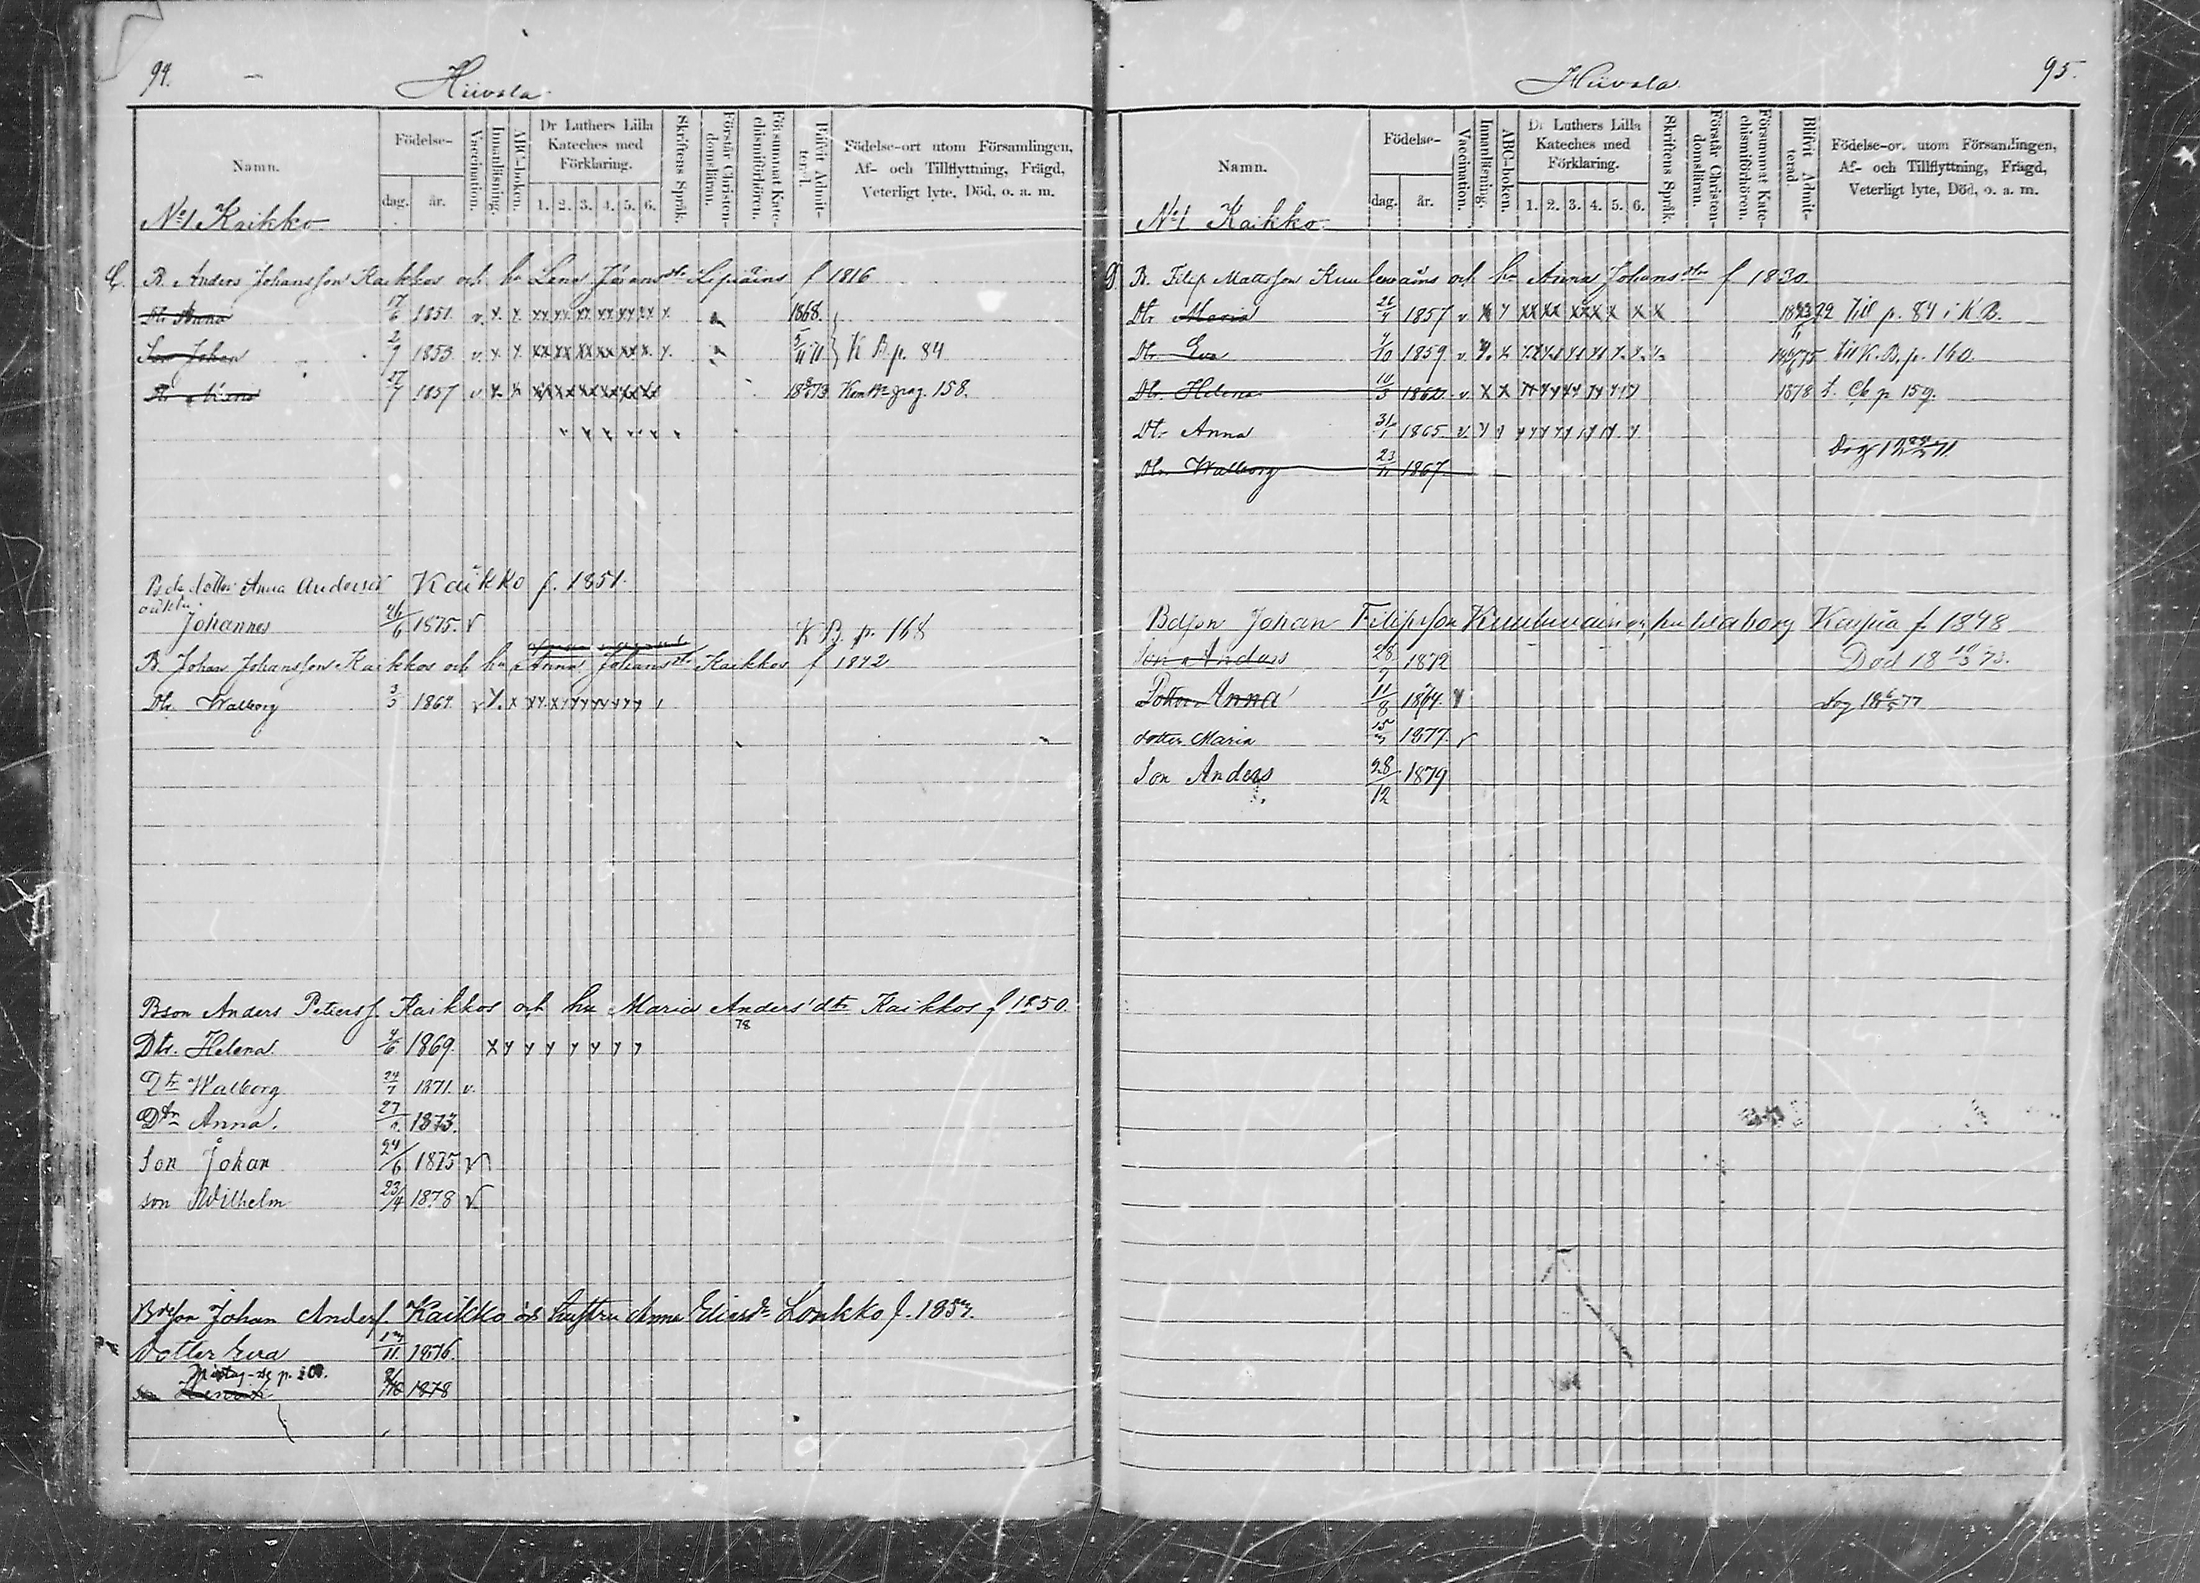 94.
Hiivola
Namn.
Födelse-
dag.
år.
Vaccination.
Innanläsning.
ABC-boken.
Dr Luthers Lilla Kateches med Förklaring.
1. 2. 3. 4. 5. 6.
Skriftens Språk.
Förstår Christendomsläran.
Försummat Katechismiförhören.
Blifvit Admitterad.
Födelse-ort utom Församlingen, Af- och Tillflyttning, Frägd, Veterligt lyte, Död, o. a. m.
No 1 Kaikko
C. B. Anders Johansson Kaikkos och hu Lena Göransdtr Lipiäins f 1816
Dtr Anna 17/6 1851. v. x. x. xx xx xx xx xx xx x. 1868.
Son Johan 2/7 1853. v. x x xx xx xx xx xx x. x. 5/11 71 } K B. p. 84
Dtr 27/7 1857 v x. x xx xx xx xx xx xx 1873 pag. 158.
x x x x x x
Bdedotter Anna Andersd Kaikko f. 1851.
oäkta
Johannes 26/6 1875. v
K B. p. 168
B. Johan Johanssons Kaikkos och hu Anna Johansdtr Kaikkos f 1842
Dtr Walborg 3/3 1864 v x. x xx xx xx xx xx
Bson Anders Petersf. Kaikkos och hu Maria Anders'dtr Kaikkos f 1850.
78
Dtr. Helena 4/6 1869. x y y y y y y y
Dtr Walborg 24/7 1871. v.
Dtr Anna. 27/ 1873.
Son Johan 24/6 1875 v
son Wilhelm 23/4 1878 v
Bdeson Johan Andersf. Kaikko och hustru Anna Eliasdr Lonkko f. 1853.
dotter Eva 13/11 1876.
p. 200.
son Henrik /10 1878
95.
Hiivola
Namn.
Födelse-
dag.
år.
Vaccination.
Innanläsning.
ABC-boken.
Dr Luthers Lilla Kateches med Förklaring.
1. 2. 3. 4. 5. 6.
Skriftens Språk.
Förstår Christendomsläran.
Försummat Katechismiförhören.
Blifvit Admitterad.
Födelse-or. utom Församlingen, Af- och Tillflyttning, Frägd, Veterligt lyte, Död, o. a. m.
No 1 Kaikko.
D. B. Filip Mattsson Kuuluvains och hu Anna Johansdtr f 1830.
Dtr Maria 26/4 1857 v x y xx xx xx xx x x x Till p. 84 i K B.
Dtr Eva 4/10 1859 v. x. x. 75 till K. B. p. 160.
Dtr Helena 10/3 1862 v x x xx yy yy yy yy 1878 p 159.
Dtr Anna 31/1 1865 v. y y y y y y y y y y.
Dtr Walborg 23/11 1867. Dog 71.
Bdson Johan Filipsson Kuuluvain o, hu Walborg f. 1848
Son Anders 28/9 1872 Död 18 73.
Dotter Anna 11/8 1874. v Dog 18 77
dotter Maria 15/3 1877. v
Son Anders 28/12 1879